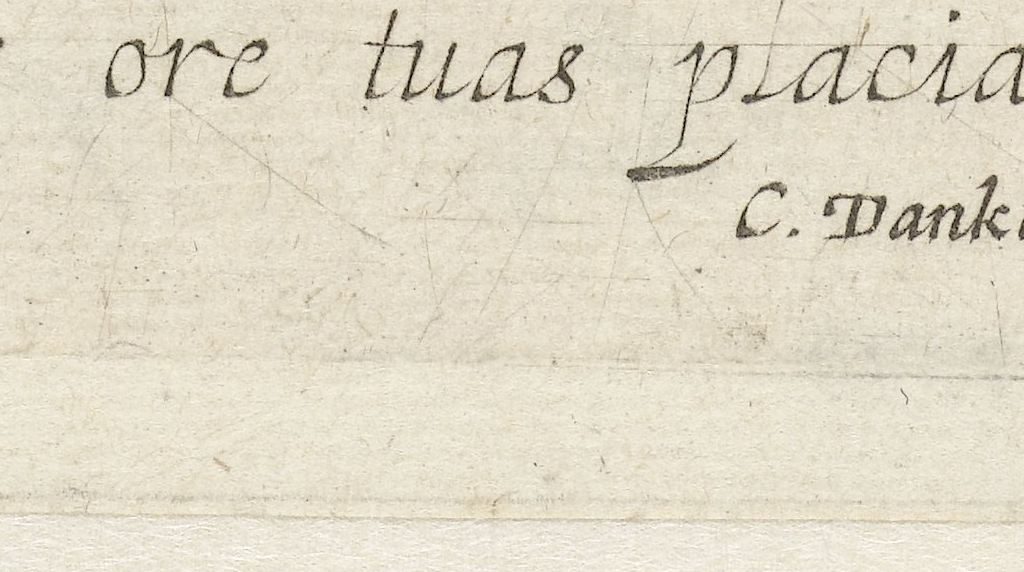 ore tuas placid
C. Dank